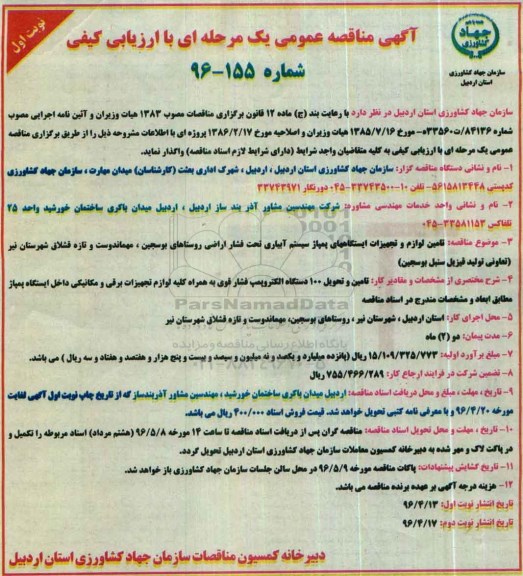 نوبت اول
آگهی مناقصه عمومی یک مرحله ای با ارزیابی کیفی
شماره ۱۵۵-۹۶
جهاد کشاورزی
سازمان جهاد کشاورزی
استان اردبیل
سازمان جهاد کشاورزی استان اردبیل در نظر دارد با رعایت بند (ج) ماده ۱۲ قانون برگزاری مناقصات مصوب ۱۳۸۳ هیات وزیران و آئین نامه اجرایی مصوب
شماره ۸۴۱۳۶/ت۳۳۵۶۰ه- مورخ ۱۳۸۵/۷/۱۶ هیات وزیران و اصلاحیه مورخ ۱۳۸۶/۲/۱۷ پروژه ای با اطلاعات مشروحه ذیل را از طریق برگزاری مناقصه
عمومی یک مرحله ای با ارزیابی کیفی به کلیه متقاضیان واجد شرایط (دارای شرایط لازم اسناد مناقصه) واگذار نماید.
۱- نام و نشانی دستگاه مناقصه گزار: سازمان جهاد کشاورزی استان اردبیل ، اردبیل ، شهرک اداری بعثت (کارشناسان) میدان مهارت ، سازمان جهاد کشاورزی
کدپستی ۵۶۱۵۸۱۳۴۴۸- تلفن ۱۰-۳۳۷۴۳۵۰۰-۰۴۵ دورنگار ۳۳۷۴۳۹۷۱
۲- نام و نشانی واحد خدمات مهندسی مشاوره: شرکت مهندسین مشاور آذر بند ساز اردبیل ، اردبیل میدان باکری ساختمان خورشید واحد ۲۵
تلفاکس ۳۳۵۸۱۱۵۳-۰۴۵
۳- موضوع مناقصه: تامین لوازم و تجهیزات ایستگاههای پمپاژ سیستم آبیاری تحت فشار اراضی روستاهای یوسجین ، مهماندوست و تازه قشلاق شهرستان نیر
(تعاونی تولید قیزیل سنبل یوسجین)
۴- شرح مختصری از مشخصات و مقادیر کار: تامین و تحویل ۱۰۰ دستگاه الکتروپمپ فشار قوی به همراه کلیه لوازم تجهیزات برقی و مکانیکی داخل ایستگاه پمپاژ
مطابق ابعاد و مشخصات مندرج در اسناد مناقصه
۵- محل اجرای کار: استان اردبیل ، شهرستان نیر ، روستاهای یوسجین، مهماندوست و تازه قشلاق شهرستان نیر
۶- مدت پیمان: دو (۲) ماه
۷- مبلغ برآورد اولیه: ۱۵/۱۰۹/۳۲۵/۷۷۳ ریال (پانزده میلیارد و یکصد و نه میلیون و سیصد و بیست و پنج هزار و هفتصد و هفتاد و سه ریال ) می باشد.
۸- تضمین شرکت در فرایند ارجاع کار: ۷۵۵/۴۶۶/۲۸۹ ریال
۹- تاریخ ، مهلت ، مبلغ و محل دریافت اسناد مناقصه: اردبیل میدان باکری ساختمان خورشید ، مهندسین مشاور آذربندساز که از تاریخ چاپ نوبت اول آگهی لغایت
مورخه ۹۶/۴/۲۰ و با معرفی نامه کتبی تحویل خواهد شد. قیمت فروش اسناد ۴۰۰/۰۰۰ ریال می باشد.
۱۰- تاریخ ، مهلت و محل تحویل اسناد مناقصه: مناقصه گران پس از دریافت اسناد مناقصه تا ساعت ۱۴ مورخه ۹۶/۵/۸ (هشتم مرداد) اسناد مربوطه را تکمیل و
در پاکت لاک و مهر شده به دبیرخانه کمسیون معاملات سازمان جهاد کشاورزی استان اردبیل تحویل گردد.
۱۱- تاریخ گشایش پیشنهادات: پاکات مناقصه مورخه ۹۶/۵/۹ در محل سالن جلسات سازمان جهاد کشاورزی باز خواهد شد.
۱۲- هزینه درجه آگهی بر عهده برنده مناقصه می باشد.
تاریخ انتشار نوبت اول: ۹۶/۴/۱۳
تاریخ انتشار نوبت دوم: ۹۶/۴/۱۷
دبیرخانه کمسیون مناقصات سازمان جهاد کشاورزی استان اردبیل
ParsNamadData